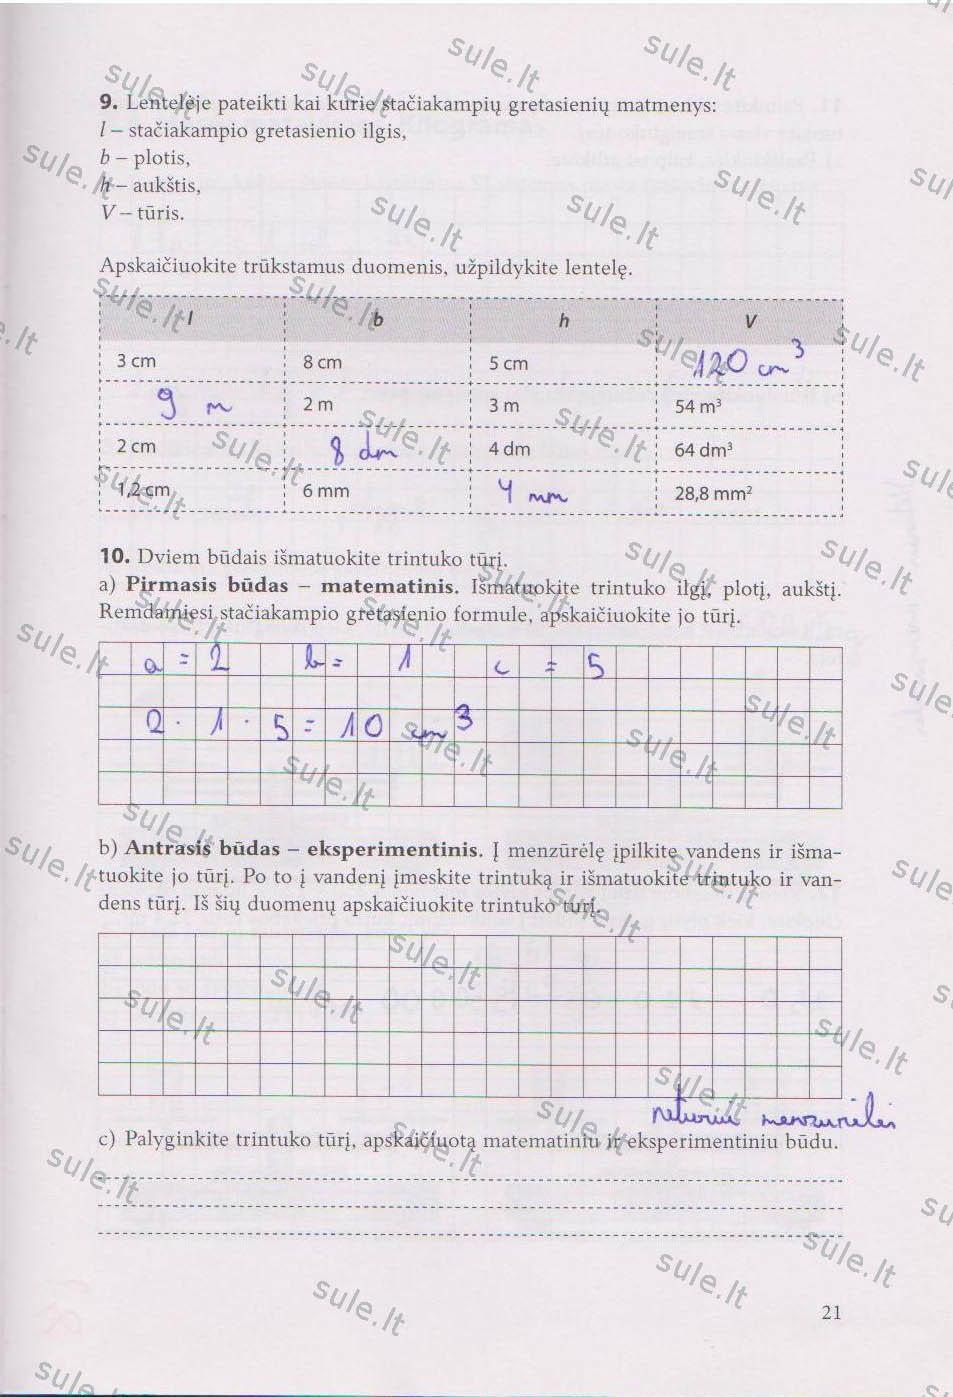 9. Lentelėje pateikti kai kurie stačiakampių gretasienių matmenys:
l – stačiakampio gretasienio ilgis,
b – plotis,
h – aukštis,
V – tūris.
Apskaičiuokite trūkstamus duomenis, užpildykite lentelę.
l b h V
3 cm 8 cm 5 cm 120 cm³
9 m 2 m 3 m 54 m³
2 cm 8 dm 4 dm 64 dm³
1,2 cm 6 mm 4 mm 28,8 mm²
10. Dviem būdais išmatuokite trintuko tūrį.
a) Pirmasis būdas – matematinis. Išmatuokite trintuko ilgį, plotį, aukštį.
Remdamiesi stačiakampio gretasienio formule, apskaičiuokite jo tūrį.
a = 2 b = 1 c = 5
2 · 1 · 5 = 10 cm³
b) Antrasis būdas – eksperimentinis. Į menzūrėlę įpilkite vandens ir išma-
tuokite jo tūrį. Po to į vandenį įmeskite trintuką ir išmatuokite trintuko ir van-
dens tūrį. Iš šių duomenų apskaičiuokite trintuko tūrį.
neturiu menzurėlės
c) Palyginkite trintuko tūrį, apskaičiuotą matematiniu ir eksperimentiniu būdu.
21
sule.lt